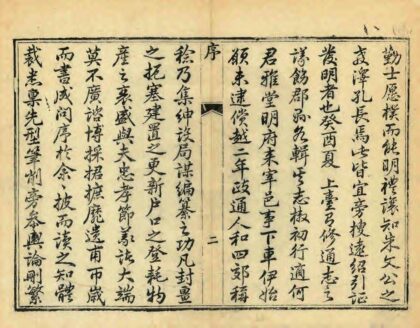 勤士愿樸而能明禮讓知朱文公之
教澤孔長焉此皆宜旁搜遠紹引証
發明者也癸酉夏 上臺 修通志之
議飭郡縣各輯 志椒初行適何
君雅堂明府来宰邑事下車伊始
願未逮償越二年政通人和四郊稱
序
二
稔乃集紳設局謀編纂之功凡封疆
之扼塞建置之更新戶口之登耗物
產之衰盛與夫忠孝節義諸大端
莫不廣諮博採捃摭靡遺甫帀歲
而書成問序於余〻披而讀之知體
裁悉稟先型筆削旁參輿論刪繁